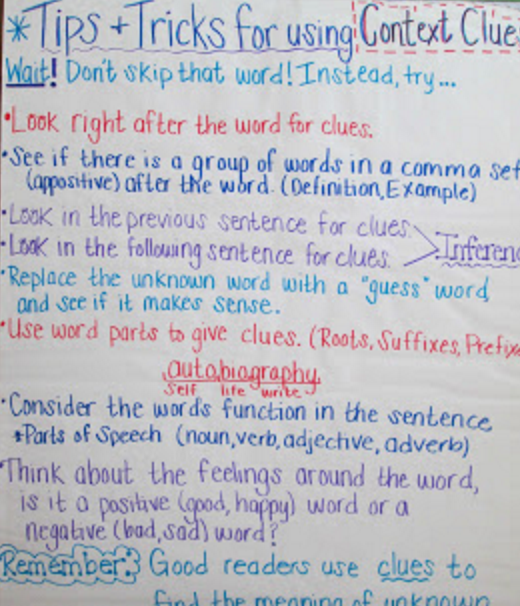 *Tips + Tricks for using Context Clue
Wait! Don't skip that word! Instead, try...
•Look right after the word for clues.
•See if there is a group of words in a comma set
(appositive) after the word. (Definition, Example)
•Look in the previous sentence for clues.
•Look in the following sentence for clues. Inferenc
•Replace the unknown word with a "guess" word,
and see if it makes sense.
•Use word parts to give clues. (Roots, Suffixes, Prefix
autobiography
self life write
•Consider the words function in the sentence
*Parts of Speech (noun, verb, adjective, adverb)
•Think about the feelings around the word,
is it a positive (good, happy) word or a
negative (bad, sad) word?
Remember: Good readers use clues to
find the meaning of unknown